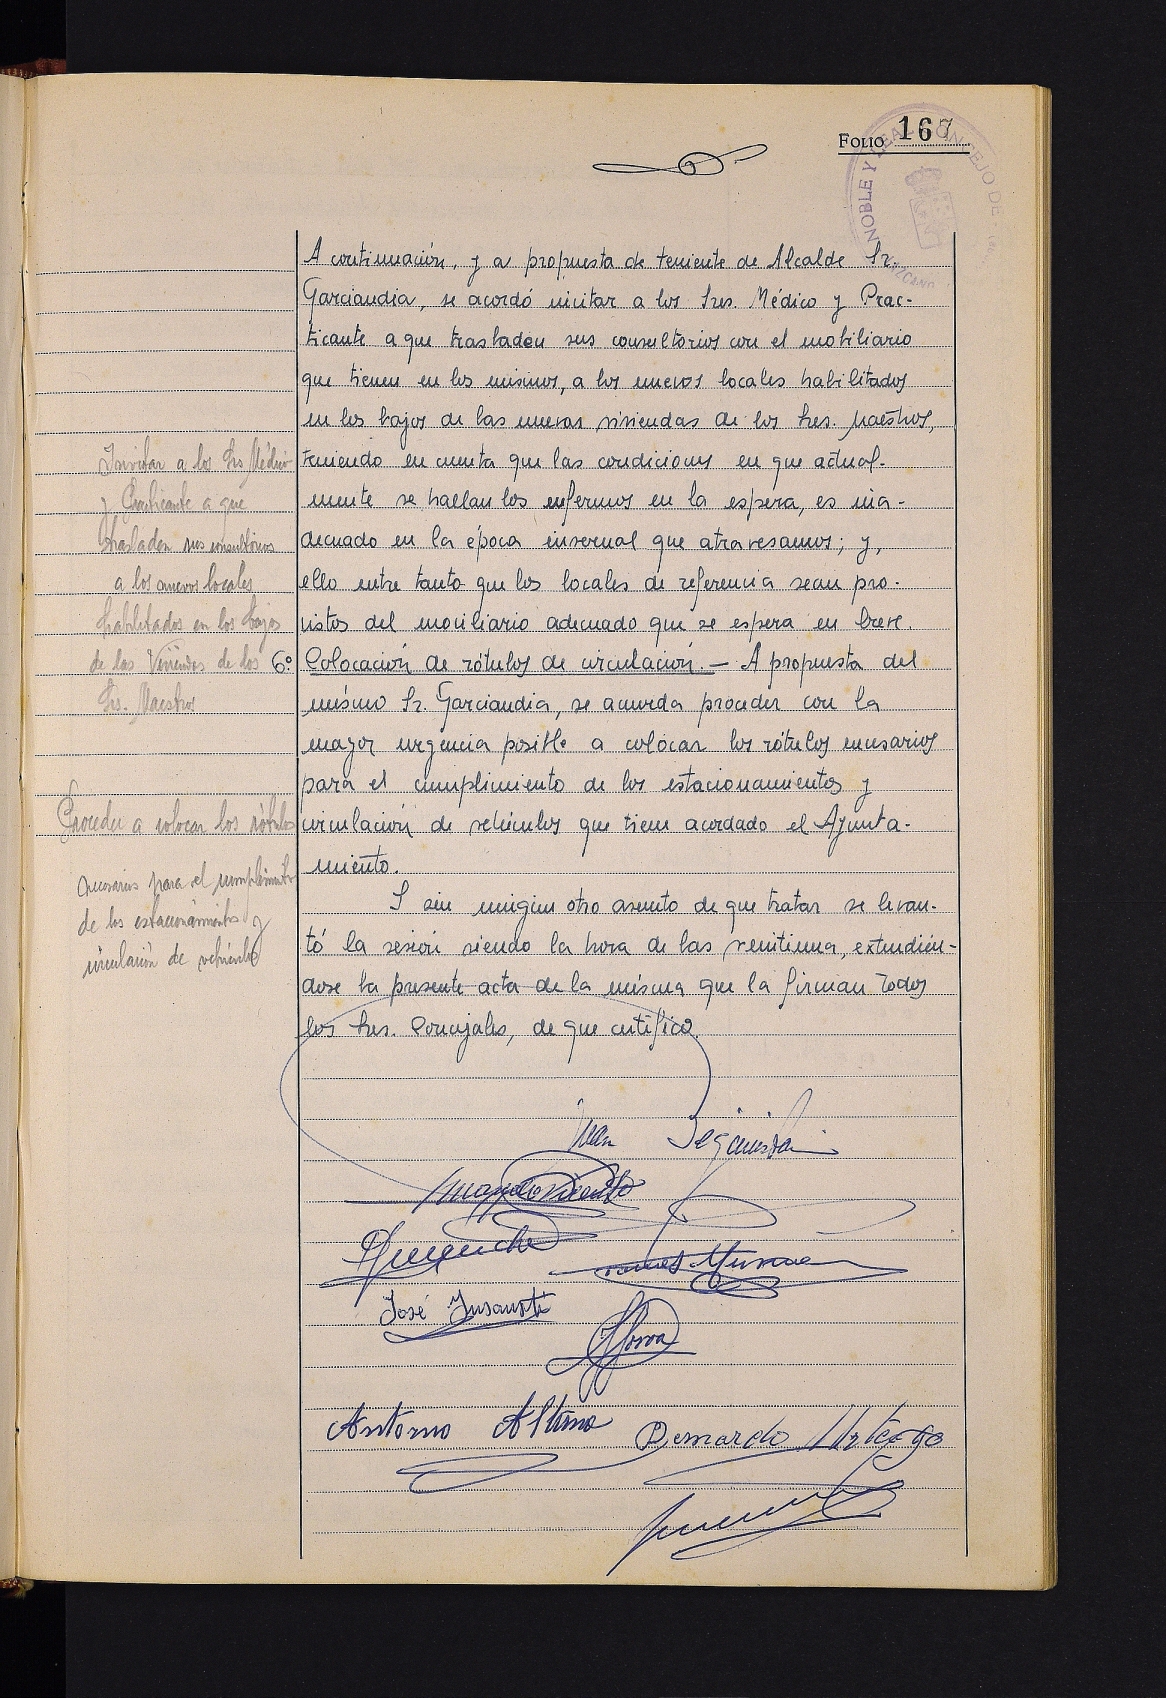 FOLIO 167
NOBLE Y LEAL CONCEJO DE
VIZCAYA
A continuación, y a propuesta de teniente de Alcalde Sr.
Garciandia, se acordó invitar a los Sres. Médico y Prac-
ticante a que trasladen sus consultorios con el mobiliario
que tienen en los mismos, a los nuevos locales habilitados
en los bajos de las nuevas viviendas de los Sres. Maestros,
teniendo en cuenta que las condiciones en que actual-
mente se hallan los enfermos en la espera, es ina-
decuado en la época invernal que atravesamos; y,
ello entre tanto que los locales de referencia sean pro-
vistos del moviliario adecuado que se espera en breve.
6º Colocación de rótulos de circulación. — A propuesta del
mísmo Sr. Garciandia, se acuerda proceder con la
mayor urgencia posible a colocar los rótulos necesarios
para el cumplimiento de los estacionamientos y
circulación de vehículos que tiene acordado el Ayunta-
miento.
Y sin ningun otro asunto de que tratar se levan-
tó la sesión siendo la hora de las veintiuna, extendién-
dose la presente acta de la mísma que la firman todos
los Sres. Concejales, de que certifico.
Invitar a los Srs Médico
y Practicante a que
trasladen sus consultorios
a los nuevos locales
habilitados en los bajos
de las Viviendas de los
Srs. Maestros
Proceder a colocar los rótulos
necesarios para el cumplimiento
de los estacionamientos y
circulación de vehículos
Juan
José Insausti
Antonio Altuna
Bernardo Urteaga